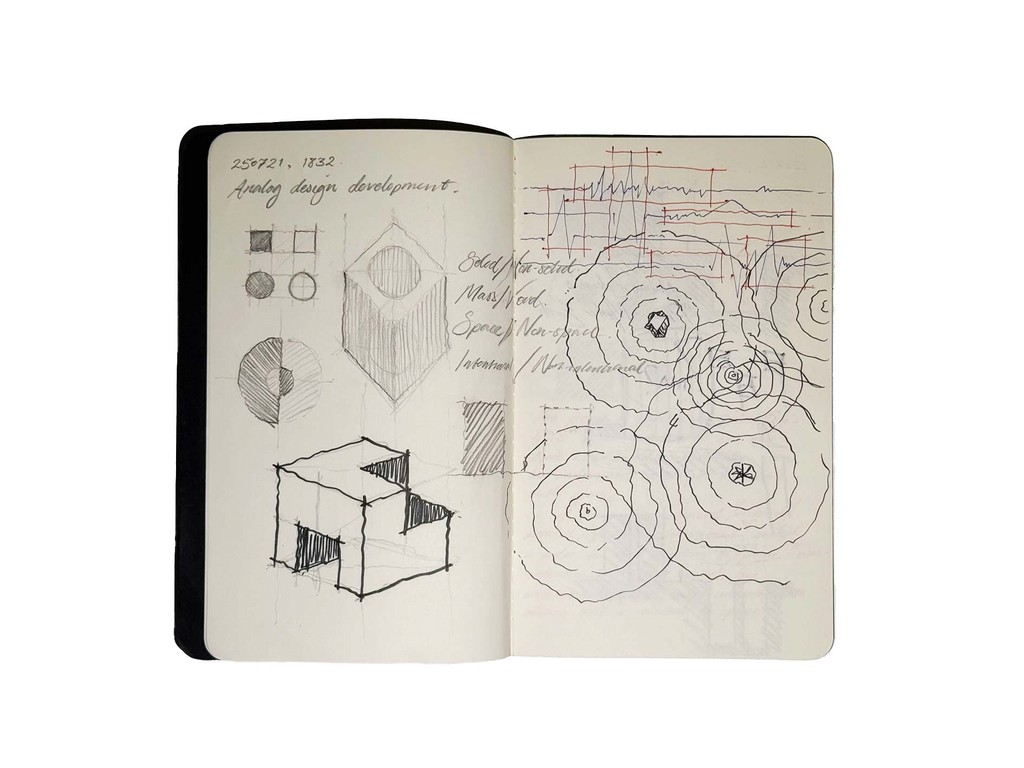 250721, 1832.
Analog design development.
Solid/Non-solid
Mass/Void.
Space/Non-space
Intentional / Non-intentional
b